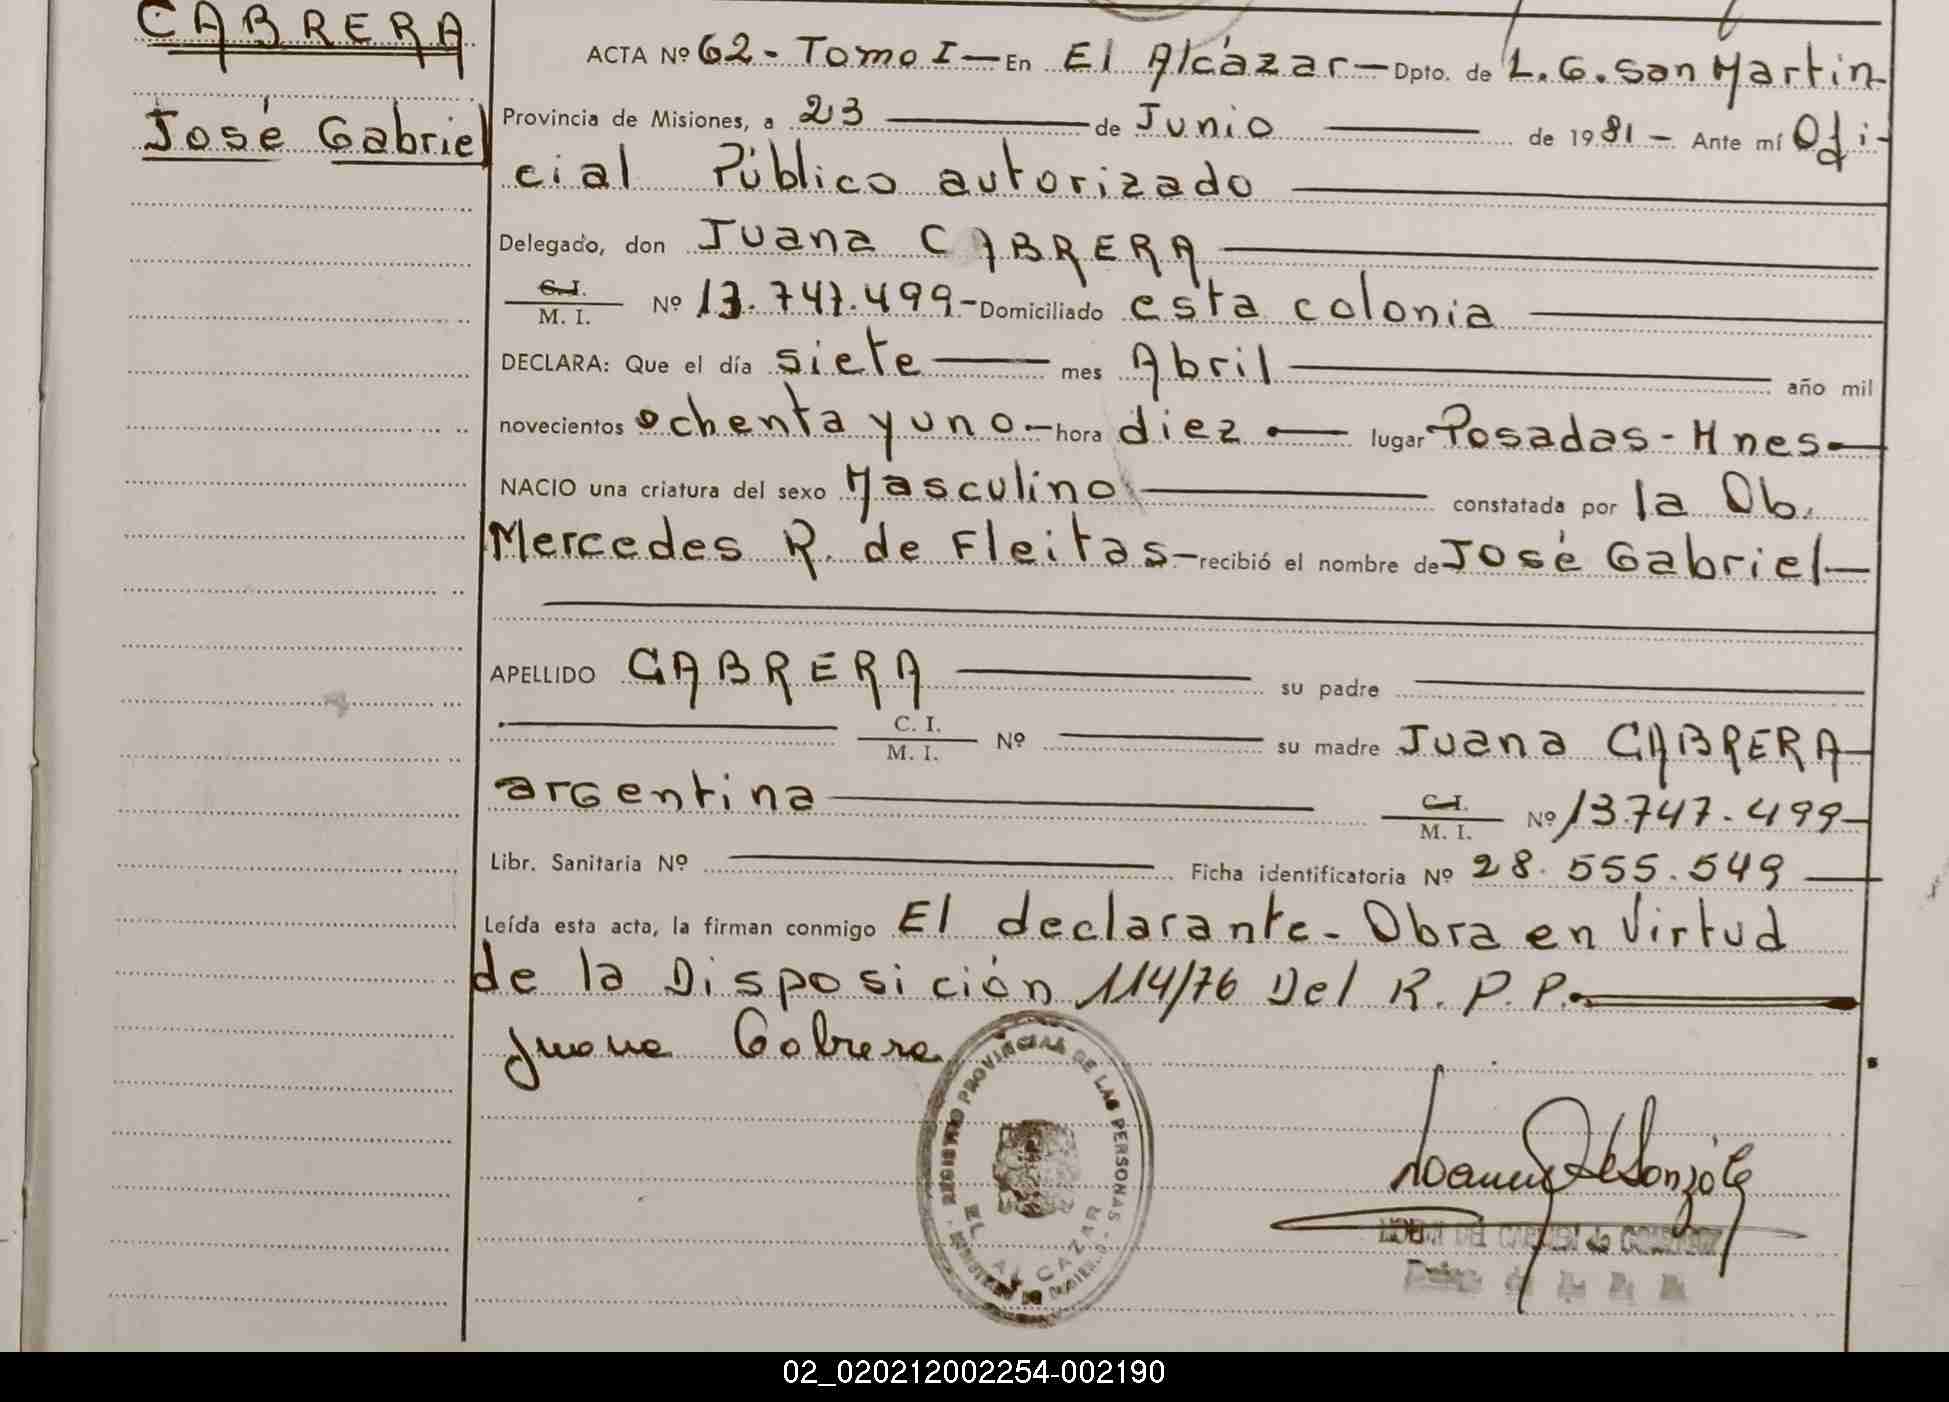 CABRERA
José Gabriel
ACTA Nº 62 - Tomo I - En El Alcázar - Dpto. de L. G. San Martin
Provincia de Misiones, a 23 de Junio de 1981 - Ante mí Ofi-
cial Público autorizado
Delegado, don Juana CABRERA
C.I.
M. I. Nº 13.747.499 - Domiciliado esta colonia
DECLARA: Que el día siete mes Abril año mil
novecientos ochenta y uno - hora diez lugar Posadas - Mnes
NACIO una criatura del sexo Masculino constatada por la Ob.
Mercedes R. de Fleitas - recibió el nombre de José Gabriel
APELLIDO CABRERA su padre
C. I.
M. I. Nº su madre Juana CABRERA
argentina C.I.
M. I. Nº 13.747.499
Libr. Sanitaria Nº Ficha identificatoria Nº 28.555.549
Leída esta acta, la firman conmigo El declarante - Obra en Virtud
de la Disposición 114/76 Del R. P. P.
Juana Cabrera
REGISTRO PROVINCIAL DE LAS PERSONAS
EL ALCAZAR
02_020212002254-002190